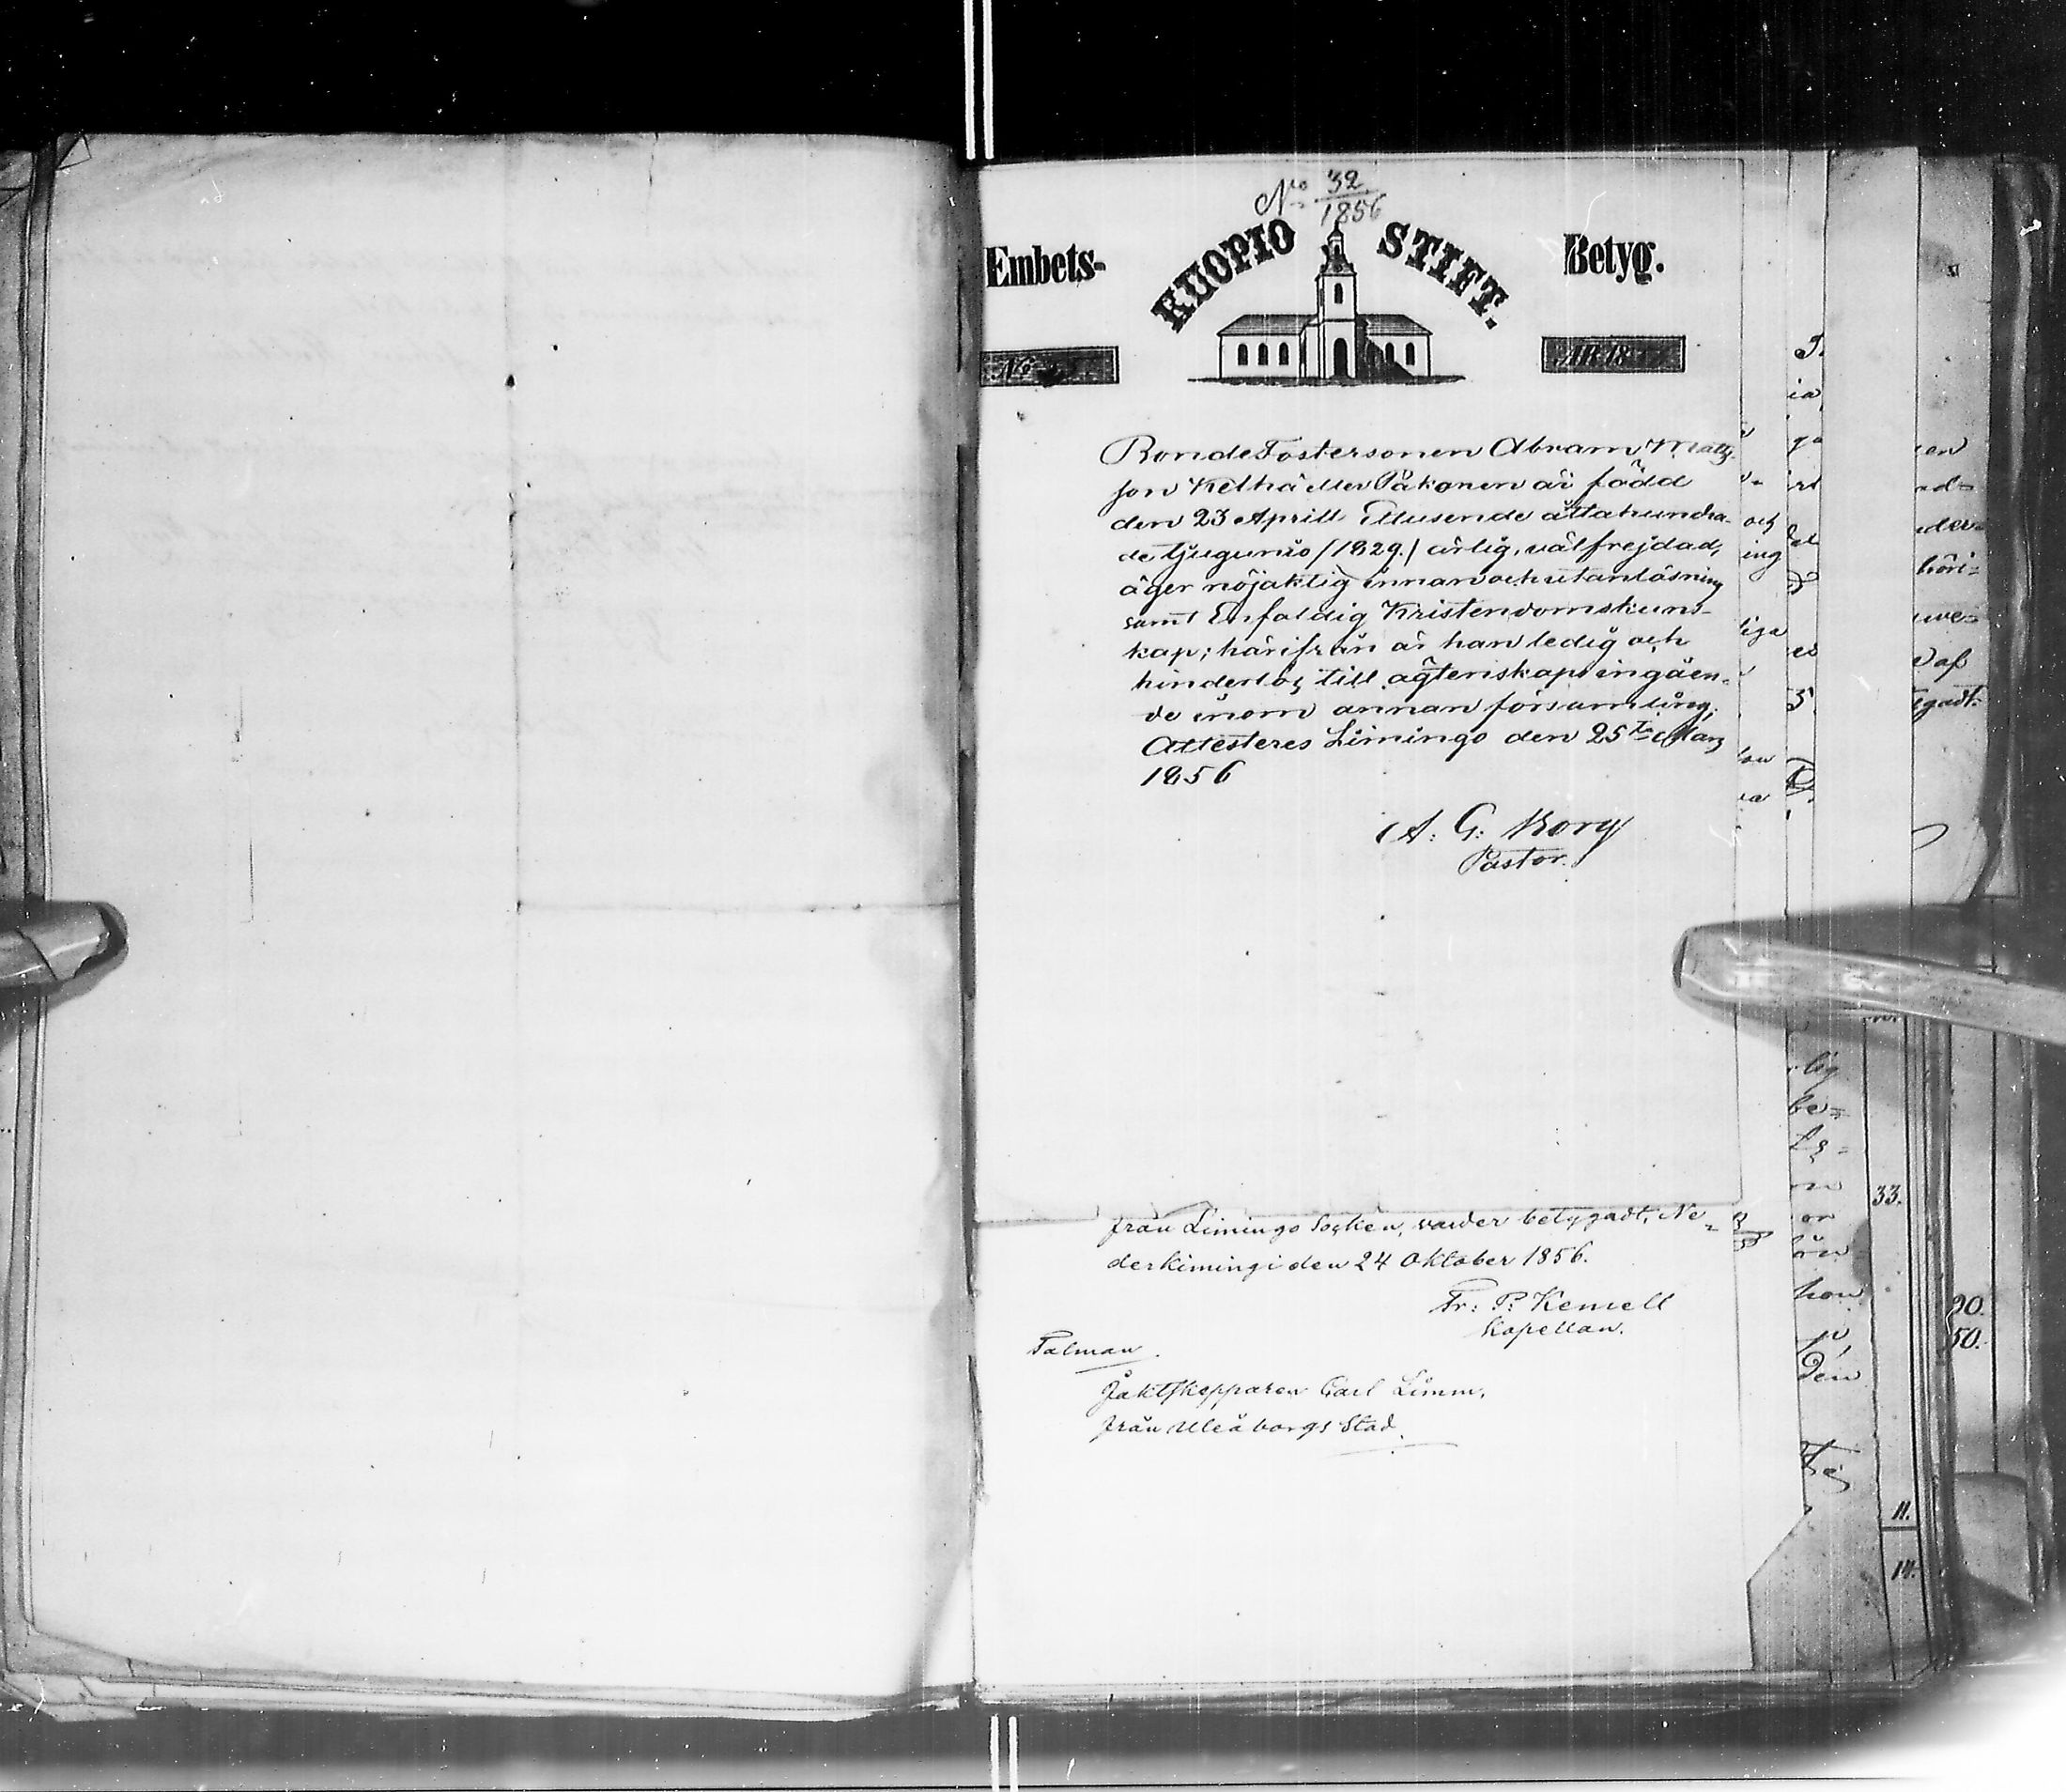 No 32
1856
Embets-
KUOPIO STIFT.
Betyg.
No
ÅR 18
BondeFostersonen Abram Matts
son Keltka eller Påkonen är född
den 23 Aprill Ettusende åttahundra-
de tjugunio /1829./ ärlig, välfrejdad,
äger nöjaktig innan och utanläsning
samt Enfaldig Kristendomskuns-
kap; härifrån är han ledig och
hinderlös till ägtenskaps ingåen-
de inom annan församling;
Attesteres Limingo den 25te Mars
1856
A: G: Borg
Pastor.
från Limingo Socken, varder betygadt, Ne-
derkimingi den 24 Oktober 1856.
Fr: P: Kemell
Kapellan.
Talman
Jaktskepparen Carl Limm,
från Uleåborgs Stad.
och
ing
liga
ia
ga
den
5.
hon
33.
lig
be=
på
den
11.
14.
en
ad=
der=
höri=
we=
af
gadt.
20.
50.